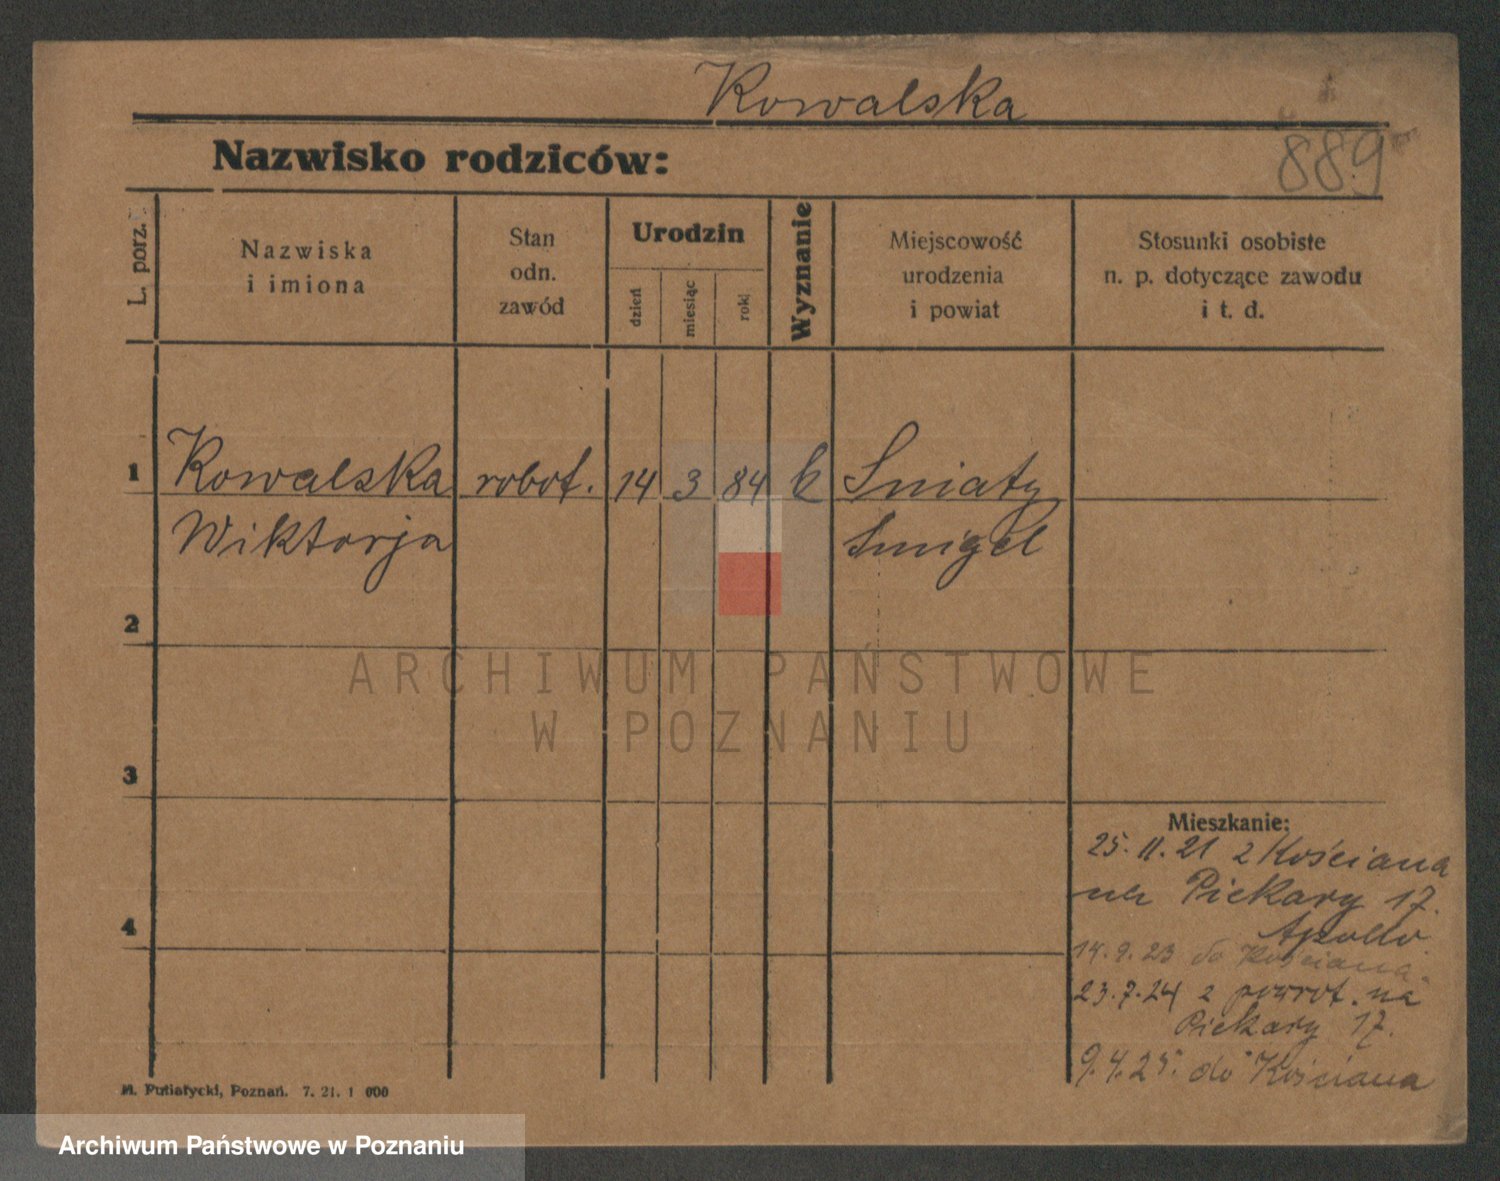 Kowalska
889
Nazwisko rodziców:
L. porz.
Nazwiska
i imiona
Stan
odn.
zawód
Urodzin
dzień
miesiąc
rok
Wyznanie
Miejscowość
urodzenia
i powiat
Stosunki osobiste
n. p. dotyczące zawodu
i t. d.
1 Kowalska robot. 14 3 84 k Śniaty
Wiktorja Śmigel
2
ARCHIWUM PAŃSTWOWE
W POZNANIU
3
Mieszkanie:
25.11.21 z Kościana
na Piekary 17.
4
Apollo
14.9.23 do Kościana.
23.7.24 z powrot. na
Piekary 17.
9.4.25. do Kościana
M. Putiatycki, Poznań. 7. 21. 1 000
Archiwum Państwowe w Poznaniu